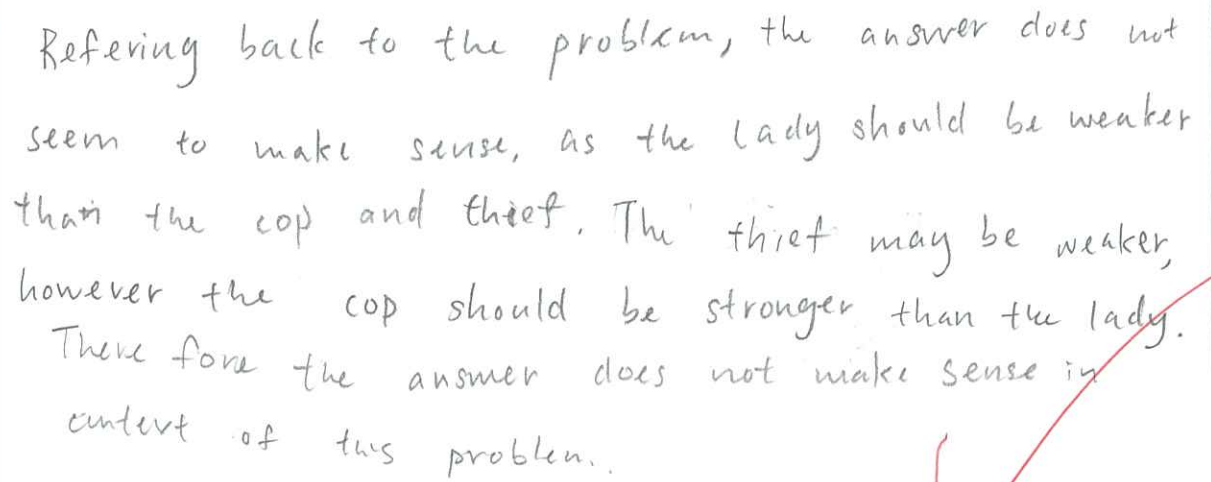 Refering back to the problem, the answer does not
seem to make sense, as the lady should be weaker
than the cop and thief. The thief may be weaker,
however the cop should be stronger than the lady.
There fore the answer does not make sense in
context of this problem.